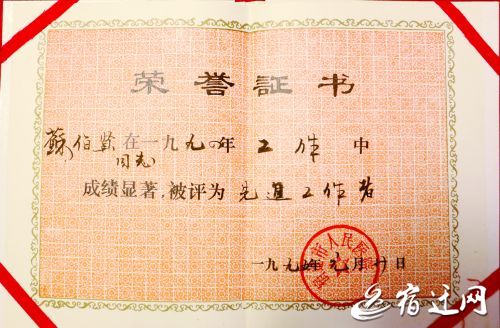 荣誉証书
蘇伯贤同志在一九九〇年工作中
成绩显著,被评为先進工作者
一九九 年元月 日
市人民医
宿迁网